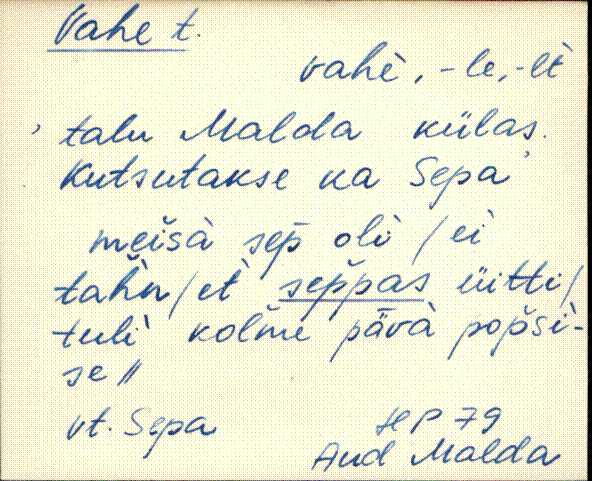 Vahe t.
vahè, -le, -lt
talu Malda külas.
Kutsutakse ka Sepa
meišà sep̄ olì / ei
tahǹ / et̀ sep̆pas üitti /
tulì kolm̆e pävà popšì-
se //
vt. Sepa
HP 79
Aud Malda